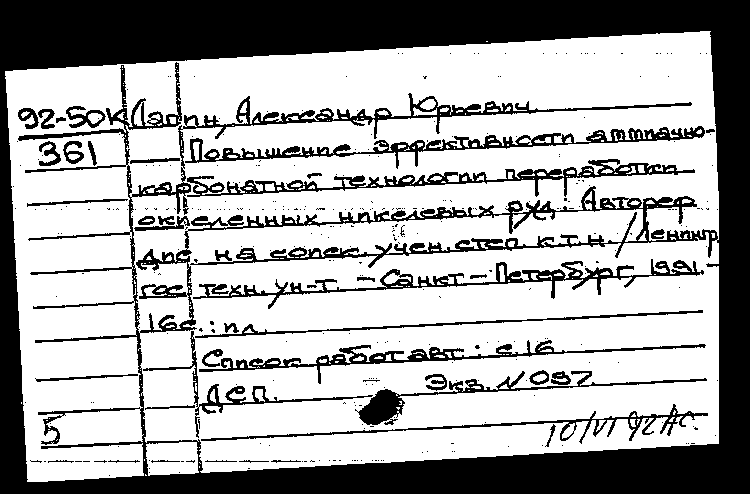 92-50К Лапин, Александр Юрьевич
361 Повышение эффективности аммиачно-
карбонатной технологии переработки
окисленных никелевых руд: Автореф
дис. на соиск. учен. степ. к.т.н. / Ленингр.
гос. техн. ун-т. – Санкт-Петербург, 1991. –
16с.: ил.
Список работ авт.: с. 16
ДСП. Экз. N 097
5 10/VI 92